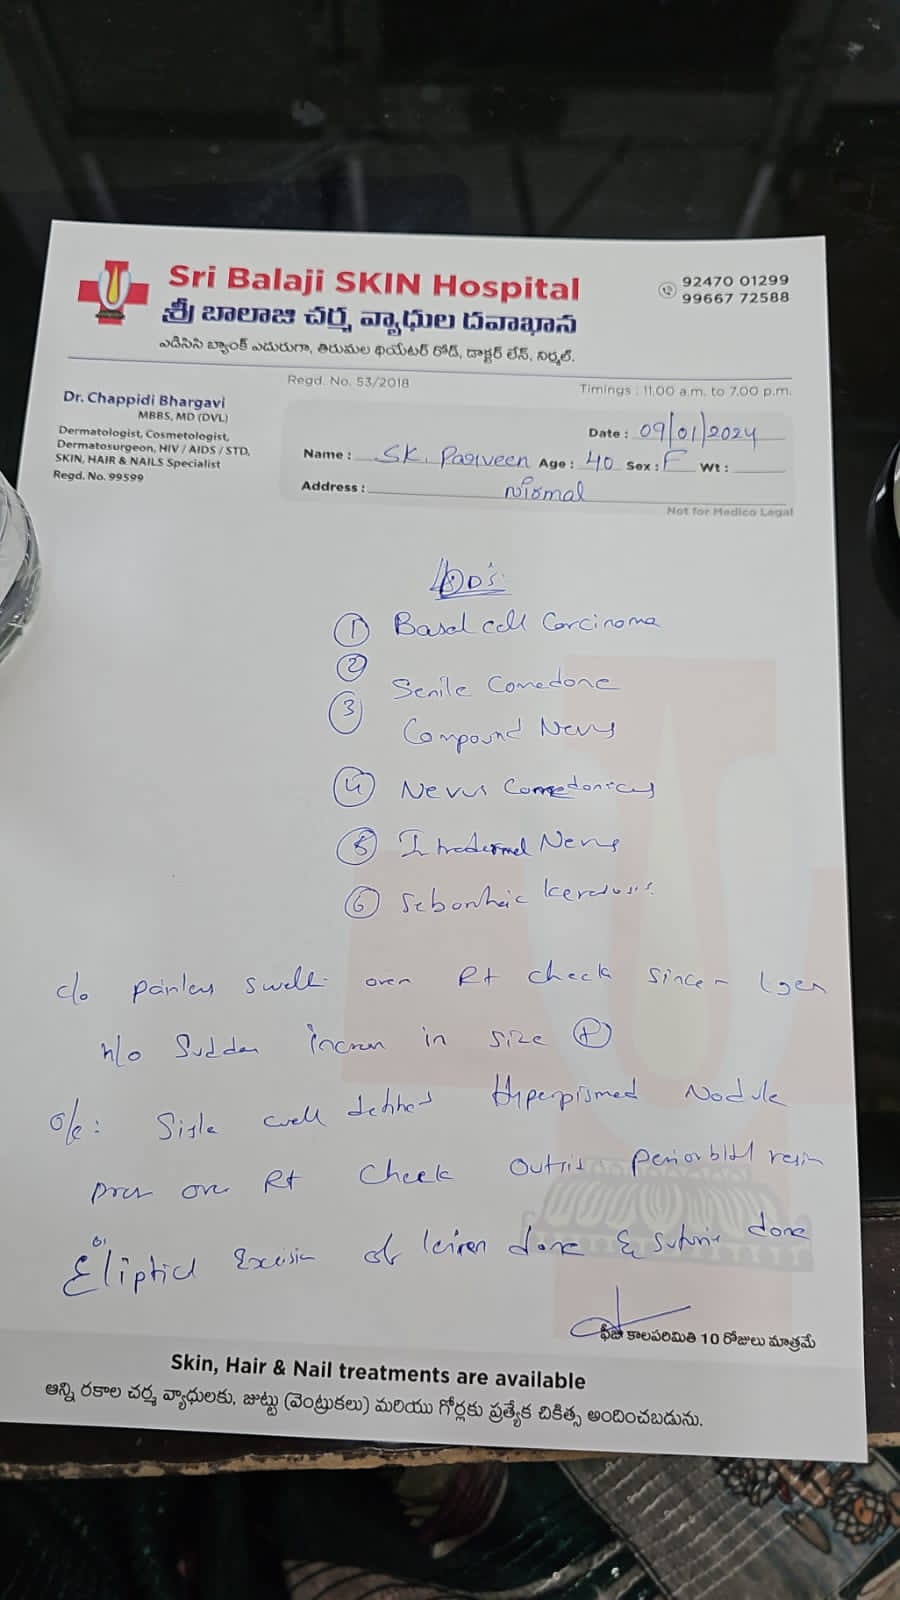 Sri Balaji SKIN Hospital
శ్రీ బాలాజి చర్మ వ్యాధుల దవాఖాన
92470 01299
99667 72588
ఎడిసిసి బ్యాంక్ ఎదురుగా, తిరుమల థియేటర్ రోడ్, డాక్టర్ లేన్, నిర్మల్.
Regd. No. 53/2018
Timings : 11.00 a.m. to 7.00 p.m.
Dr. Chappidi Bhargavi
MBBS, MD (DVL)
Dermatologist, Cosmetologist,
Dermatosurgeon, HIV / AIDS / STD,
SKIN, HAIR & NAILS Specialist
Regd. No. 99599
Date : 09/01/2024
Name : SK. Parveen Age : 40 Sex : F Wt :
Address : Nirmal
Not for Medico Legal
DD's:
① Basal cell Carcinoma
②
③ Senile Comedone
Compound Nevus
④ Nevus Comedonicus
⑤ Intradermal Nevus
⑥ Seborrheic Keratosis.
c/o painless swell over Rt cheek since 1 year
h/o Sudden increase in size
o/e: Single well defined Hyperpigmented Nodule
over Rt cheek periorbital
Elliptical Excision of lesion done & suturing done
ఫీజు కాలపరిమితి 10 రోజులు మాత్రమే
Skin, Hair & Nail treatments are available
అన్ని రకాల చర్మ వ్యాధులకు, జుట్టు (వెంట్రుకలు) మరియు గోర్లకు ప్రత్యేక చికిత్స అందించబడును.